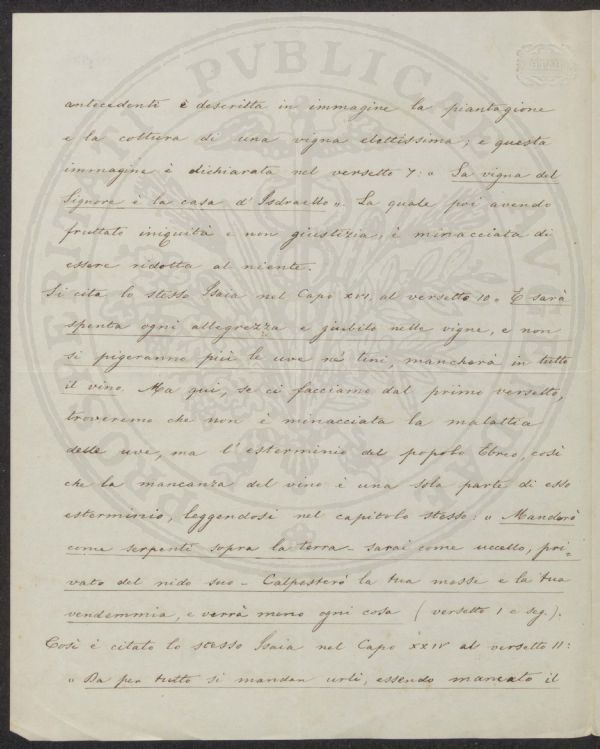 antecedenti è descritta in immagine la piantagione
e la coltura di una vigna elettissima; e questa
immagine è dichiarata nel versetto 7: „ La vigna del
Signore è la casa d' Isdraello „. La quale poi avendo
fruttato iniquità e non giustizia, è minacciata di
essere ridotta al niente.
Si cita lo stesso Isaia nel Capo XVI, al versetto 10 „ E sarà
spenta ogni allegrezza e giubilo nelle vigne, e non
si pigeranno più le uve ne' tini, mancherà in tutto
il vino. Ma qui, se ci facciamo dal primo versetto,
troveremo che non è minacciata la malattia
delle uve, ma l' esterminio del popolo Ebreo, così
che la mancanza del vino è una sola parte di esso
esterminio, leggendosi nel capitolo stesso: „ Manderò
come serpenti sopra la terra – sarai come uccello, pri=
vato del nido suo – Calpesterò la tua messe e la tua
vendemmia, e verrà meno ogni cosa ( versetto 1 e seg.).
Così è citato lo stesso Isaia nel Capo XXIV al versetto 11:
„ Da per tutto si mandan urli, essendo mancato il